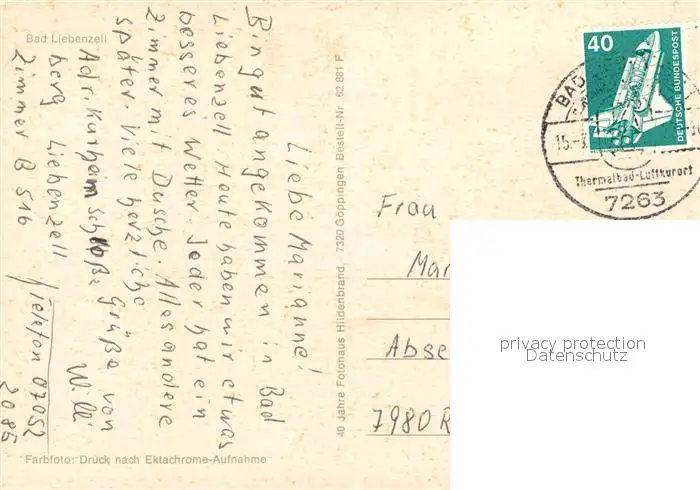 Bad Liebenzell
Liebe Marianne!
Bin gut angekommen in Bad
Liebenzell Heute haben wir etwas
besseres Wetter. Jeder hat ein
Zimmer mit Dusche. Alles andere
später. Viele herzliche
Grüße von
Willi
Adr. Kurheim Schloßberg Liebenzell
Zimmer B 516
Telefon 07052
2086
Farbfoto: Druck nach Ektachrome-Aufnahme
40 Jahre Fotohaus Hildenbrand, 7320 Göppingen Bestell-Nr 62 881 F
40
DEUTSCHE BUNDESPOST
BAD
15.-
Thermalbad-Luftkurort
7263
Frau
Mar
Abse
7980 R
privacy protection
Datenschutz